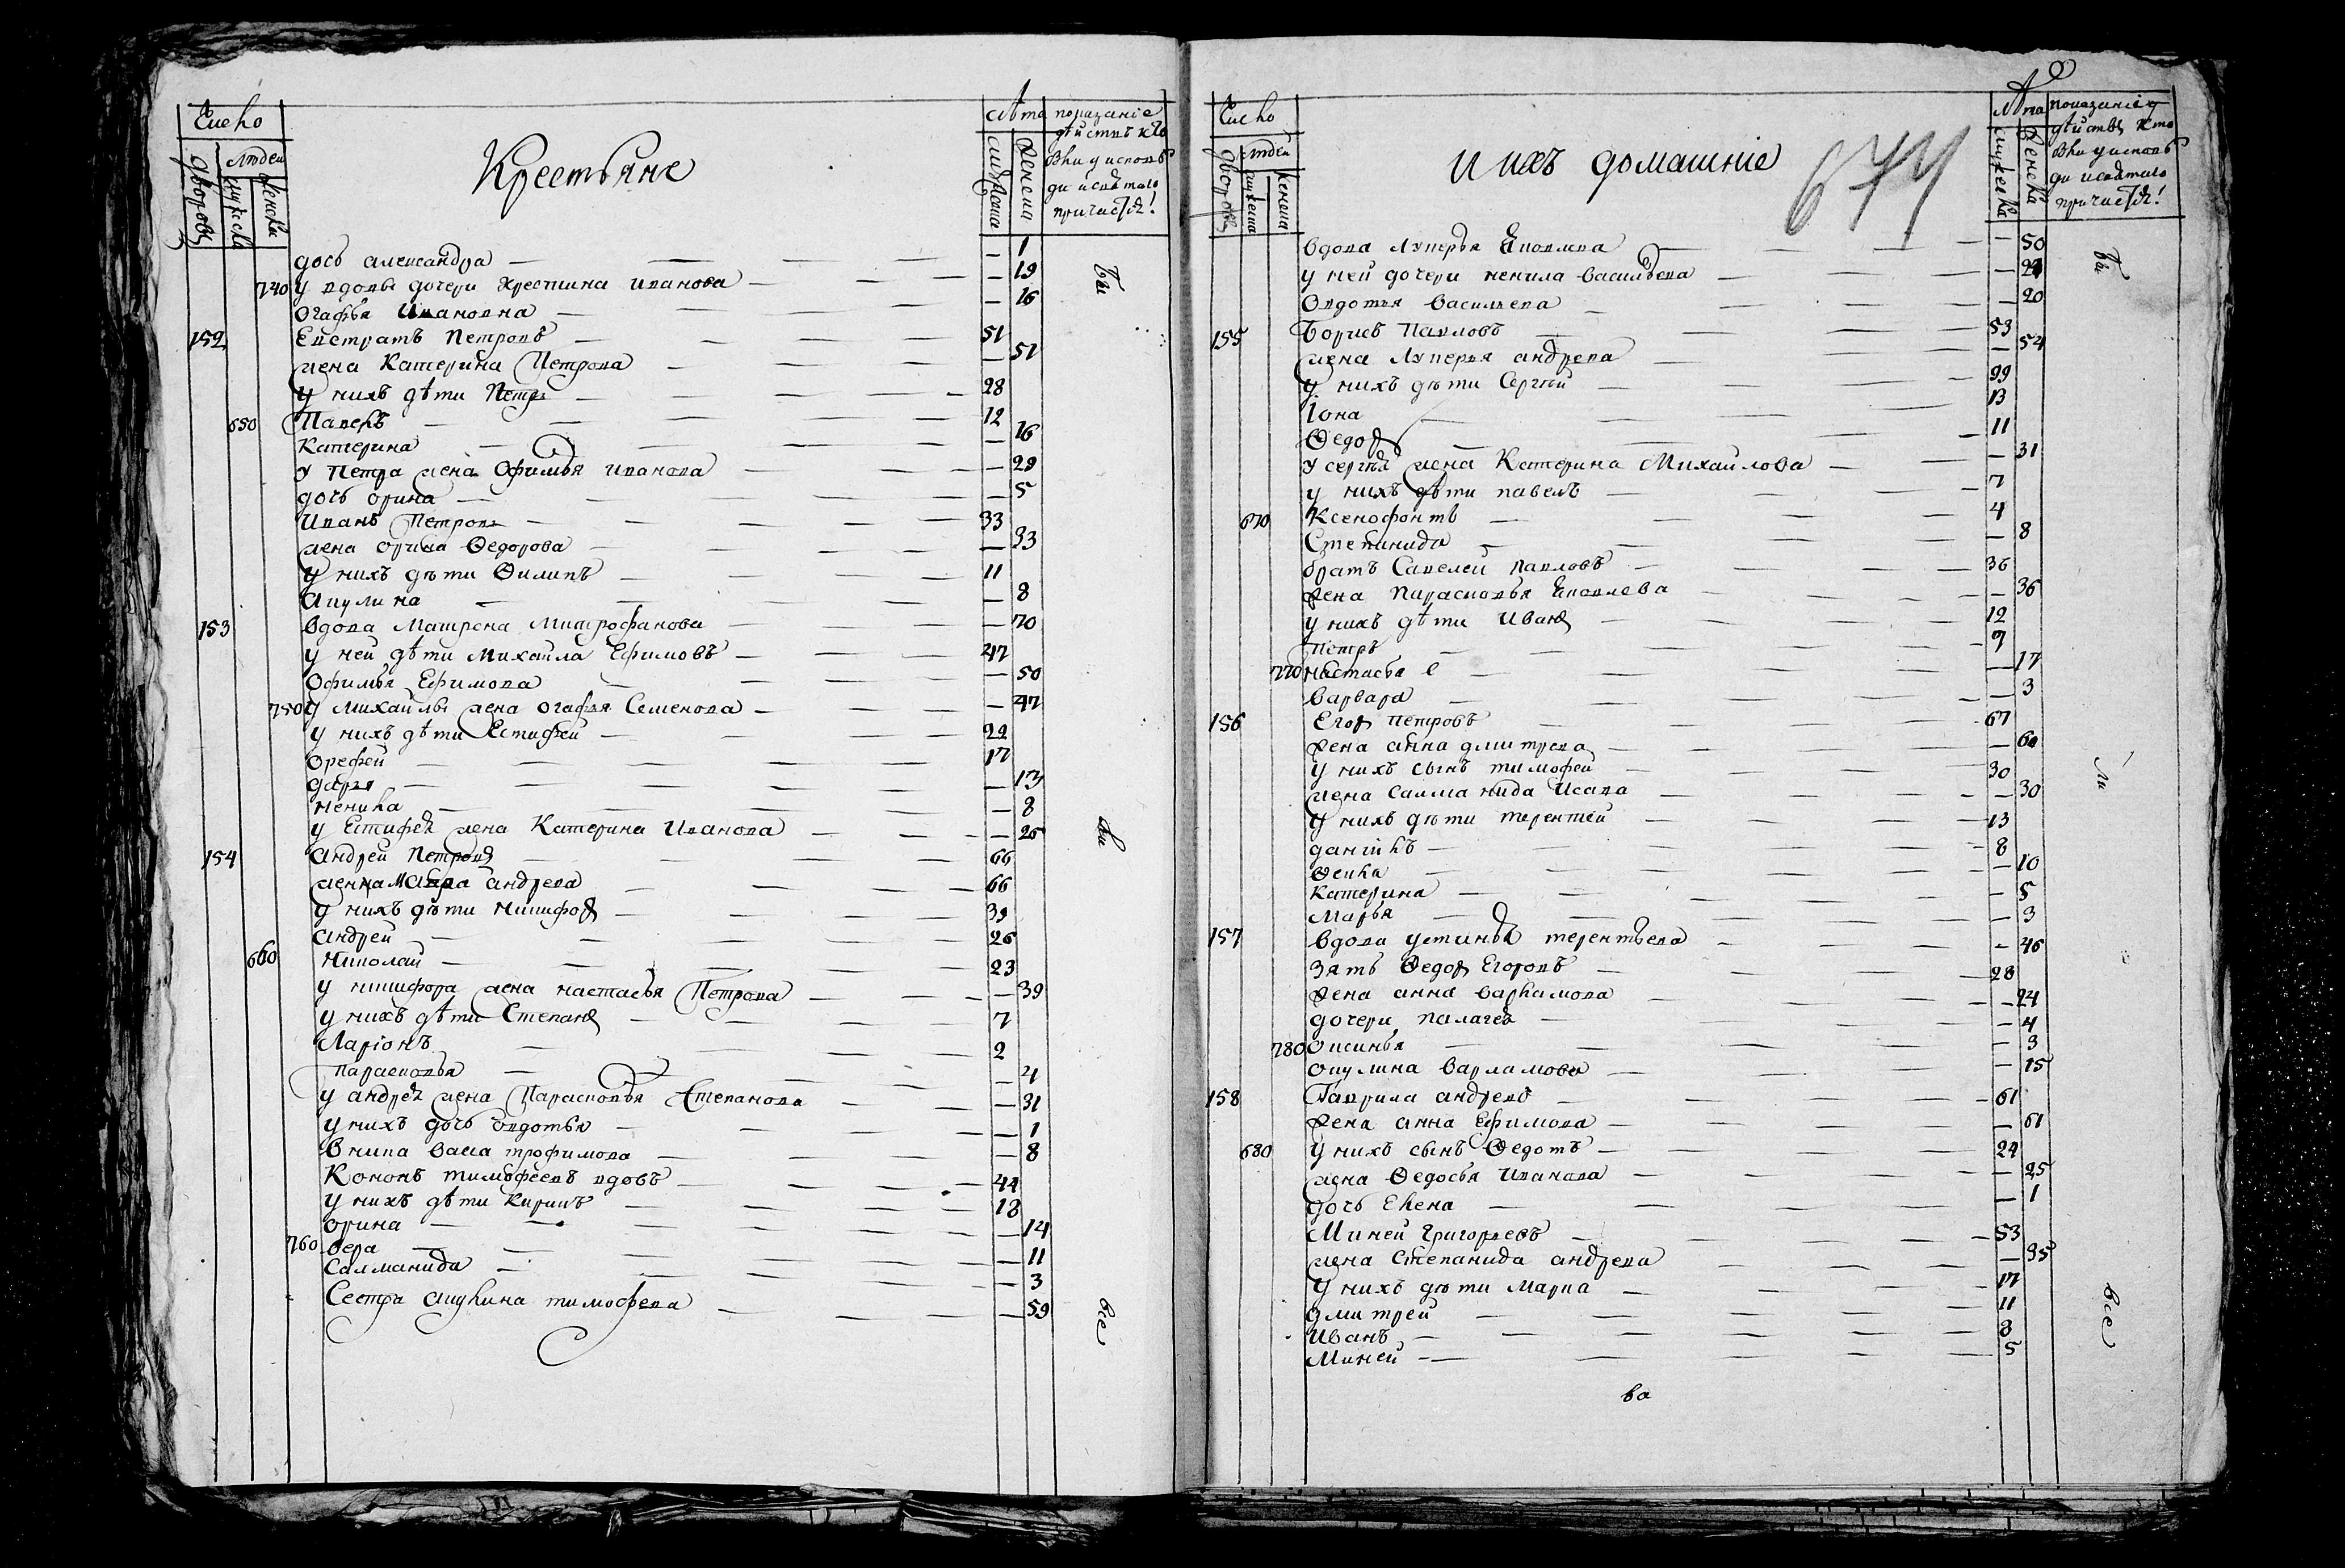 Число
дворовъ
людей
мужеска
женска
Крестьяне
лѣта
мужеска
женска
показаніе дѣйствъ кто
были у исповѣ
ди и святаго
причастія!
дочь александра — 1
740 у вдовы дочери Хрестина иванова — 19
Огафья Ивановна — 16
152 Евстратъ Петровъ 51
жена Катерина Петрова — 51
у нихъ дѣти Петръ 28
650 Павелъ 12
Катерина — 16
у Петра жена Офимья иванова — 29
дочь орина — 5
Иванъ Петровъ 33
жена орина Ѳедорова — 33
у нихъ дѣти Ѳилипъ 11
Акулина — 8
153 вдова Матрена Митрофанова — 70
у ней дѣти Михаила Ефимовъ 47
Офимья Ефимова — 50
750 у михаилы жена огафья Семенова — 47
у нихъ дѣти Естифей 22
Орефей 17
дарья — 13
ненила — 8
у Естифея жена Катерина Иванова — 25
154 андрей Петровъ 66
женна Мавра андрева 66
у нихъ дѣти никифоръ 39
андрей 26
660 Николай 23
у никифора жена настасья Петрова — 39
у нихъ дѣти Степанъ 7
Ларіонъ 2
парасковья — 4
у андрея жена Парасковья Степанова — 31
у нихъ дочь овдотья — 1
Внука васса трофимова — 8
Кононъ тимофеевъ вдовъ 44
у нихъ дѣти Кирикъ 18
орина — 14
760 вера — 11
Салманида — 3
Сестра акулина тимофева — 59
бы
ли
все
Число
дворовъ
людей
мужеска
женска
и ихъ домашніе
674
лѣта
мужеска
женска
показаніе
дѣйствъ кто
были у исповѣ
ди и святаго
причастія!
вдова Лукерья Яковлева — 50
у ней дочери ненила васильева — 24
Овдотья васильева — 20
155 Борисъ Павловъ 53
жена Лукерья андрева — 54
у нихъ дѣти Сергѣй 29
Іона 13
Ѳедоръ 11
у сергѣя жена Катерина Михаилова — 31
у нихъ дѣти павелъ 7
670 Ксенофонтъ 4
Степанида — 8
братъ Савелей павловъ 36
жена Парасковья Яковлева — 36
у нихъ дѣти Иванъ 12
Петръ 9
770 настасья — 17
варвара — 3
156 Егоръ петровъ 67
жена анна дмитрева — 60
у нихъ сынъ тимофей 30
жена Салманида Исаева — 30
у нихъ дѣти терентей 13
данійлъ 8
Ѳекла — 10
Катерина — 5
Марья — 3
157 вдова устинья терентьева — 46
Зять Ѳедоръ Егоровъ 28
жена анна варламова — 24
дочери палагея — 4
780 Оксинья — 3
окулина варламова — 15
158 Гаврила андревъ 61
жена анна Ефимова — 61
680 у нихъ сынъ Ѳедотъ 24
жена Ѳедосья Иванова — 25
дочь Елена — 1
Миней григорьевъ 53
жена Степанида андрева — 35
у нихъ дѣти Марка 17
дмитрей 11
Иванъ 8
Миней 5
бы
ли
все
ва